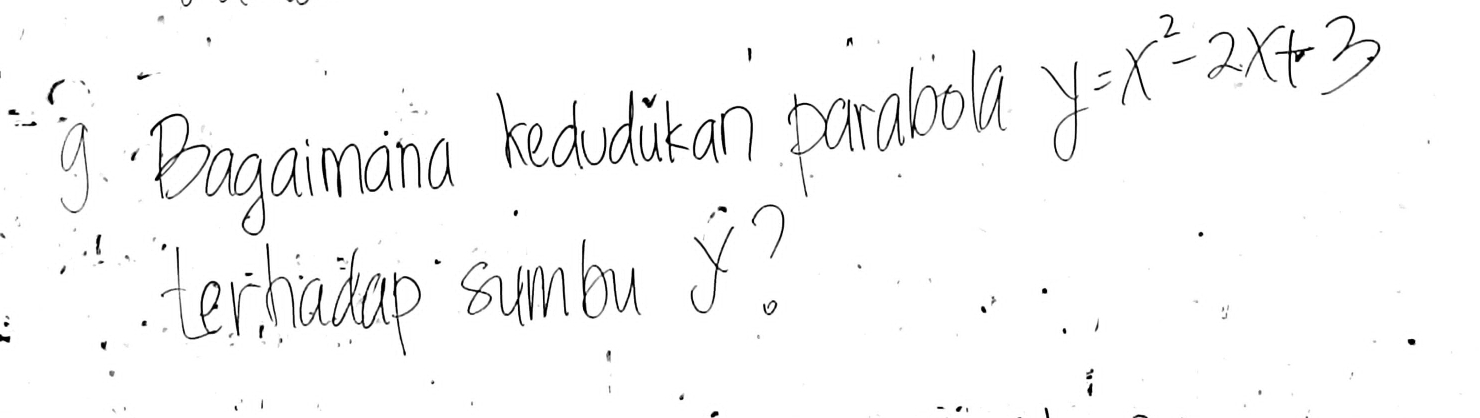 9. Bagaimana kedudukan parabola y=x²-2x+3
terhadap sumbu y?